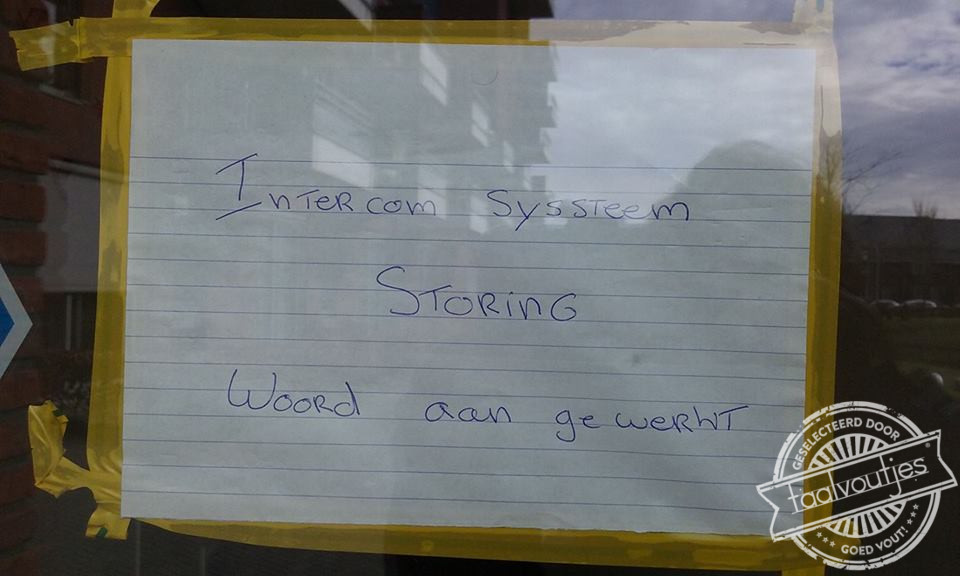 Intercom Syssteem
Storing
Woord aan gewerkt
GESELECTEERD DOOR
taalvoutjes
GOED VOUT!